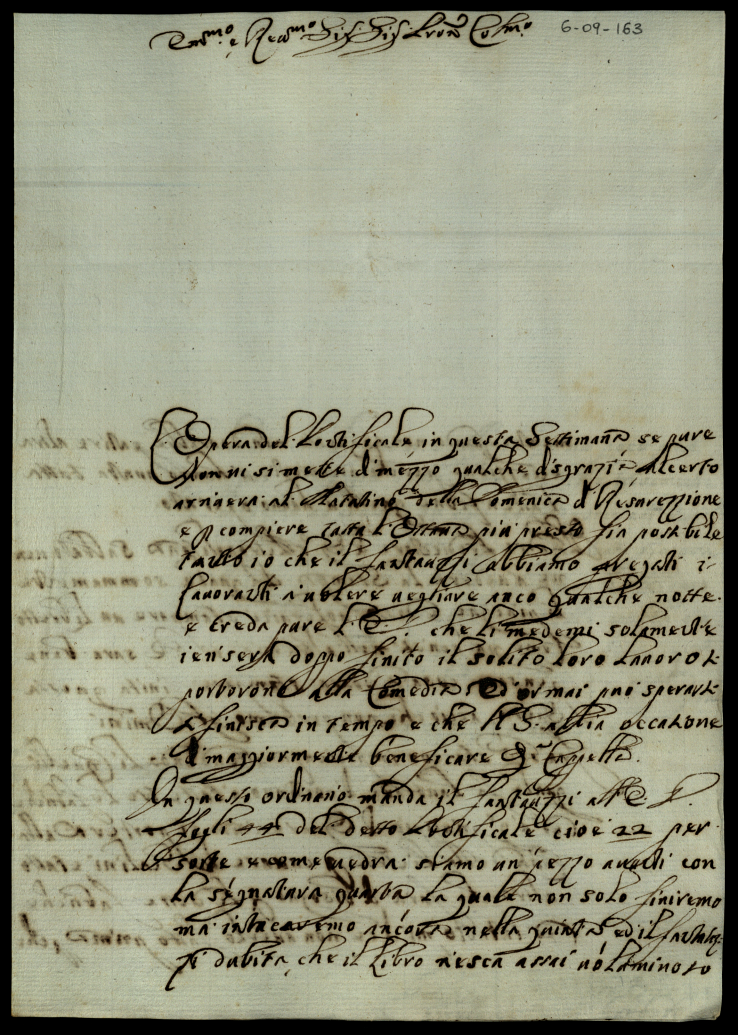 Em.mo e Reu.mo Sig. Sig. Pron. Col.mo 6-09-163
L'Opera del Pontificale in questa Settimana se pure
non ui si mette di mezzo qualche disgrazia al certo
arriuera al Matutino della Domenica di Resurezzione
e p compiere tutta l'Opera piu presto sia possibile
tanto io che il Fantauzzi abbiamo pregati i
Lauoranti a uolere uegliare anco qualche notte
e creda pure l'E. V. che li medemi solamente
ier sera doppo finito il solito loro lauoro si
portorono alla Comedia. Ed ormai puo sperarsi
si finisca in tempo e che N. S. abbia occasione
di maggiormente beneficare q.a Cappella.
In questo ordinario manda il Fantauzzi all'E. V.
fogli 44 del detto Pontificale cioè 22 per
sorte e come uedra siamo un pezzo auanti con
la segnatura quarta la quale non solo finiremo
ma intacaremo ancora nella quinta ed il Fantauz
zi dubita che il Libro riesca assai uoluminoso